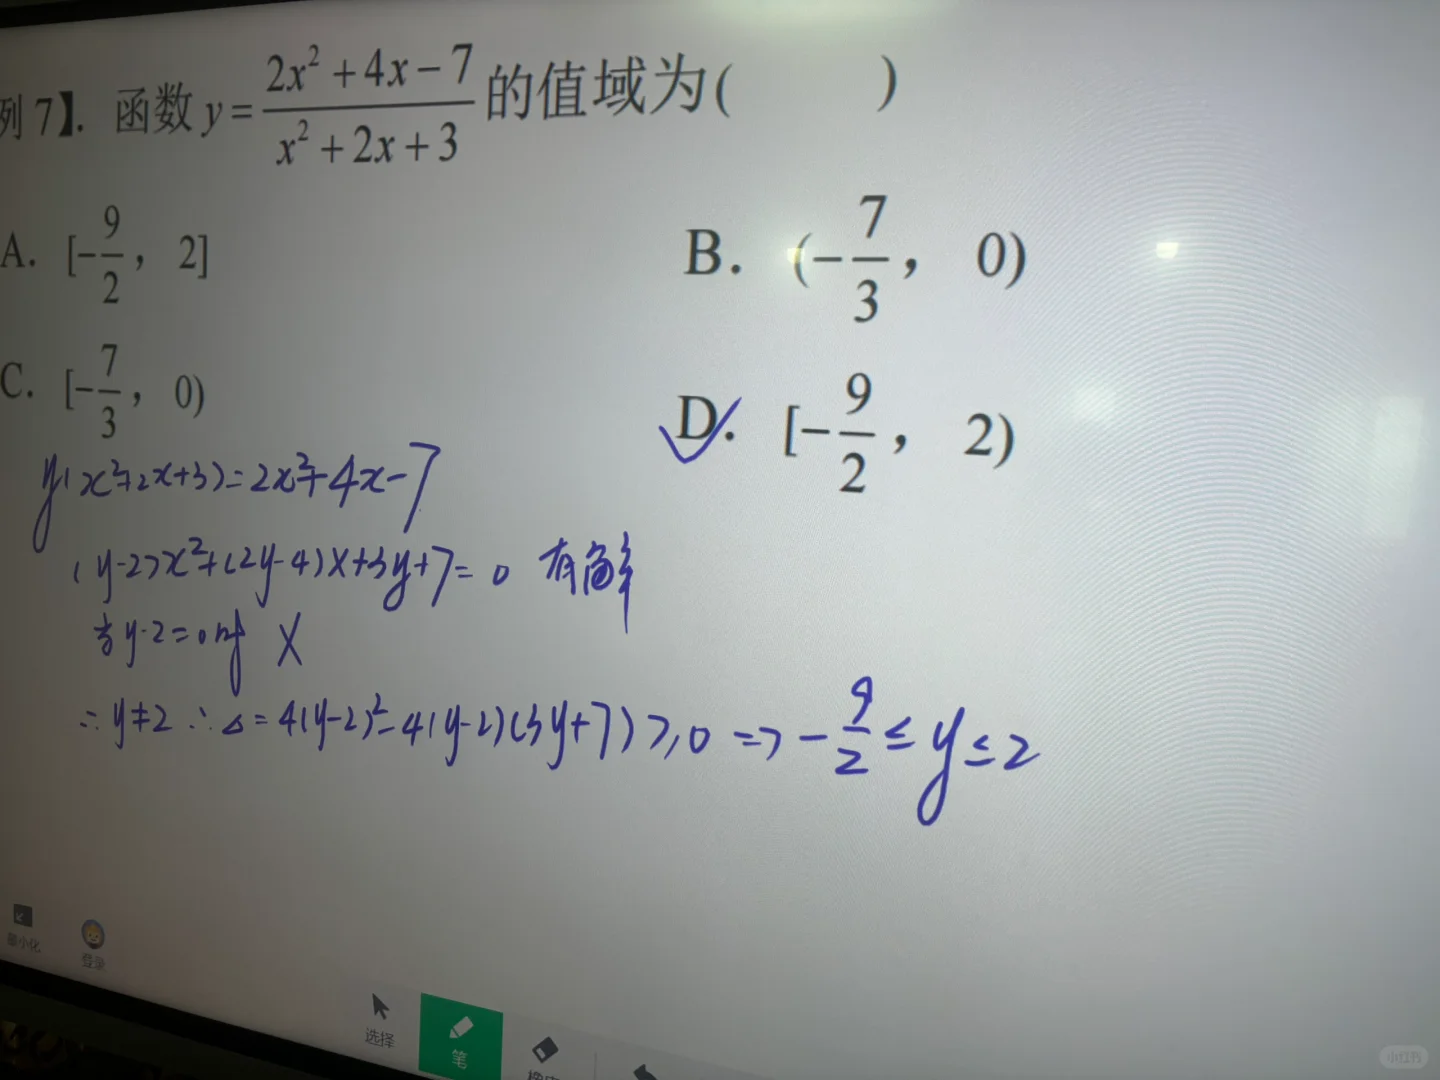 例 7】. 函数 y = \frac{2x^2+4x-7}{x^2+2x+3} 的值域为(        )
A. [-\frac{9}{2}, 2]
B. (-\frac{7}{3}, 0)
C. [-\frac{7}{3}, 0)
D. [-\frac{9}{2}, 2)
y(x²+2x+3)=2x²+4x-7
(y-2)x²+(2y-4)x+3y+7=0 有解
当y-2=0时 X
∴ y≠2 ∴ △=4(y-2)²-4(y-2)(3y+7)≥0 => -\frac{9}{2}≤y≤2
最小化
登录
选择
笔
小红书